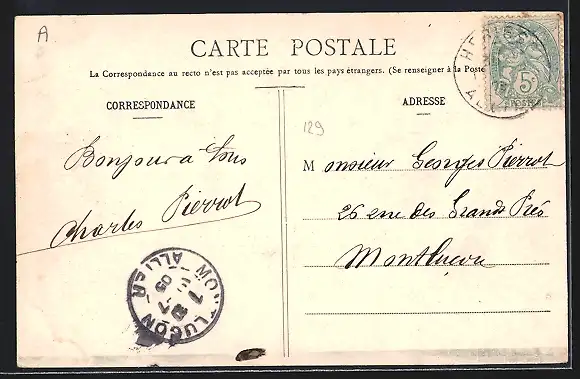 A
CARTE POSTALE
La Correspondance au recto n'est pas acceptée par tous les pays étrangers. (Se renseigner à la Poste
CORRESPONDANCE
ADRESSE
129
Bonjour à tous
Charles Pierrot
Monsieur Georges Pierrot
26 rue des Grands Prés
Montluçon
5c
POSTES
MONTLUÇON
ALLIER